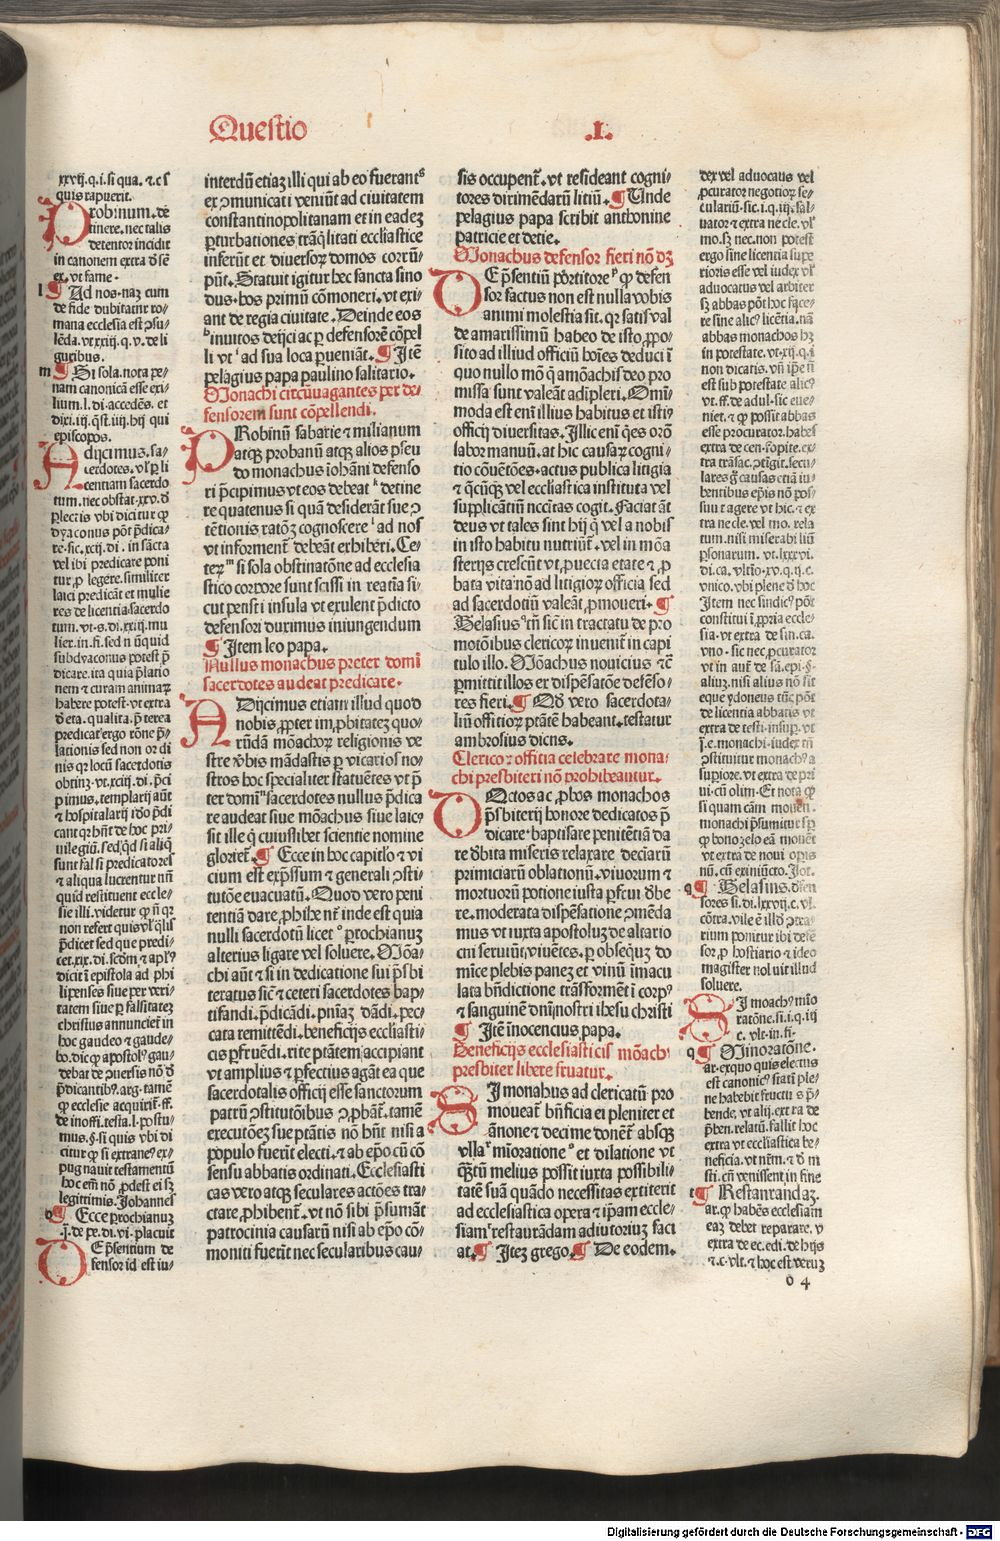 Questio
.I.
xxvij.q.i.si qua. ⁊.c s
quis rapuerit.
Probinum. de
tinere. nec talis
detentor incidit
in canonem extra d̄ sē
ex. vt fame.
l ¶ Ad nos. naꝫ cum
de fide dubitatur ro⸗
mana ecclesia est ꝯsu⸗
lēda. vt xxiiij. q. v. de li
guribus.
m ¶ Si sola. nota pe⸗
nam canonicā esse exi⸗
lium. l. di. accedēs. et
dixi. iij. q̄st. iiij. hij qui
episcopos.
Adijcimus. sa⸗
cerdotes. vl̓ ꝑ li
centiam sacerdo
tum. nec obstat. xxv. d̄
ꝑlectis vbi dicitur ꝙ
dyaconus pōt p̄dica⸗
re. sic. xcij. di. in sācta
vel ibi predicare poni
tur. ꝓ legere. similiter
laici predicāt et mulie
res de licentia. sacerdo
tum. vt. s. di. xxiij. mu
lier. in. fi. sed n̄ ūquid
subdyaconus potest p̄
dicare. ita quia p̄lario
nem ⁊ curam animaꝝ
habere potest. vt extra
d̄ eta. qualita. p̄ terea
predicat̓ ergo rōne p̄⸗
lationis sed non or di
nis qꝛ locū sacerdotis
obtinꝫ. vt. xciij. di. p̄ci
p̄ imus. templarij aūt
⁊ hospitalarij iō p̄di
cant qꝛ hn̄t de hoc pri⸗
uilegiū. sed q̄d si aliq̄
sunt fal si predicatores
⁊ aliqua lucrentur nū
quid restituent eccle⸗
sie illi. videtur ꝙ n̄ qꝛ
non refert quis vl̓ q̄lis
p̄dicet sed que predi⸗
cet. xix. di. scdm̄ ⁊ apl̓s
dicit ī epistola ad phi
lipenses siue per veri⸗
tatem siue ꝑ falsitateꝫ
christus annunciet̄ in
hoc gaudeo ⁊ gaude⸗
bo. dic ꝙ apostol̓ gau⸗
debat de ꝯuersis nō d̄
p̄dicantibꝰ. arg. tamē
ꝙ ecclesie acquirit̄. ff.
de inoffi. testa. l. postu⸗
mus. §. si quis vbi di
citur ꝙ si extraneꝰ ex⸗
pug nauit testamentū
hoc em̄ nō ꝓdest ei sꝫ
legittimis. Johannes
o ¶ Ecce ꝑochianuꝫ
.j. de pe. di. vi. placuit
DE p̄sentium de
fensor id est iu⸗
interdū etiaꝫ illi qui ab eo fuerant s
ex ꝯmunicati veniūt ad ciuitatem
constantinopolitanam et in eadeꝫ
ꝑturbationes trāq̄litati eccliastice
inferūt et diuersoꝝ domos corrū⸗
pūt. Statuit igitur hec sancta sino
dus. hos primū cōmoneri. vt exi⸗
ant de regia ciuitate. Deinde eos
h inuitos deijci ac ꝑ defensorē cōpel
li vt i ad sua loca ꝑueniāt. ¶ Itē
pelagius papa paulino salitario.
Monachi circūuagantes per de⸗
fensorem sunt cōpellendi.
PRobinū sabarie ⁊ milianum
atqꝫ probanū atqꝫ alios pseu
do monachus iohāni defenso
ri p̄cipimus vt eos debeat k detine
re quatenus si quā desiderāt sue ꝯ
tētionis ratōꝫ cognoscere l ad nos
vt informent̄ debeāt exhiberi. Ce⸗
terꝝ m si sola obstinatōne ad ecclesia
stico corpore sunt scissi in reatīa si⸗
cut pensti insula vt exulent p̄dicto
defensori duximus iniungendum
¶ Item leo papa.
Nullus monachus preter domī
sacerdotes audeat predicare.
ADijcimus etiam illud quod
nobis ꝓpter im. ꝓbitateꝫ quo⸗
rūdā mōachoꝝ religionis ve
stre v̄bis mādastis ꝑ vicarios no⸗
stros hoc specialiter statuētes vt p̄
ter domī n sacerdotes nullus p̄dica
re audeat siue mōachus siue laicꝰ
sit ille q̄ cuiuslibet scientie nomine
gloriet̄. ¶ Ecce in hoc capitl̓o ⁊ vi
cium est exp̄ssum ⁊ generali ꝯsti⸗
tutōe euacuatū. Quod vero peni
tentiā dare. ꝓhibe nt̄ inde est quia
nulli sacerdotū licet o ꝑrochianuꝫ
alterius ligare vel soluere. Mōa⸗
chi aūt ⁊ si in dedicatione sui p̄sbi
teratus sic̄ ⁊ ceteri sacerdotes bap⸗
tisandi. p̄dicādi. pn̄iaꝫ dādi. pec⸗
cata remittēdi. beneficijs eccliasti⸗
cis ꝑfruēdi. rite ptātem accipiant
vt amplius ⁊ ꝑfectius agāt ea que
sacerdotalis officij esse sanctorum
patrū ꝯstitutōibus ꝯ. ꝓbāt̄. tamē
executōeꝫ sue ptātis nō hn̄t nisi a
populo fuerīt electi. ⁊ ab epō cū cō
sensu abbatis ordinati. Ecclesiasti
cas vero atqꝫ seculares actōes tra⸗
ctare. ꝓhibent̄. vt nō sibi p̄sumāt
patrocinia causarū nisi ab epō cō⸗
moniti fuerīt nec secularibus cau⸗
sis occupent̄. vt resideant cogni⸗
tores dirimēdarū litiū. ¶ Unde
pelagius papa scribit anthonine
patricie et decie.
Monachus defensor fieri nō dꝫ
DE p̄sentiū portitore p ꝙ defen
sor factus non est nulla vobis
animi molestia sit. qꝛ satis val
de amarissimū habeo de isto. ꝓpo⸗
sito ad illiud officiū hoīes deduci ī
quo nullo mō q̄ a mōachis deo pro
missa sunt valeāt adipleri. Omī
moda est enī illius habitus et isti⸗
officij diuersitas. Illic enī q̄es orō
labor manuū. at hic causaꝝ cogni⸗
tio cōuētōes. actus publica litigia
⁊ q̄cūqꝫ vel eccliastica instituta vel
supplicātiū nccitas cogit. Faciat āt
deus vt tales sint hij q̄ vel a nobis
in isto habitu nutriūt̄. vel in mōa
sterijs crescūt vt. ꝓuecta etate ⁊ ꝓ
bata vita nō ad litigioꝝ officia sed
ad sacerdotiū valeāt. ꝓmoueri. ¶
Gelasius q tn̄ sic̄ in tractatu de pro
motōibus clericoꝝ inuenit̄ in capi
tulo illo. Mōachus nouicius ⁊c̄
ꝑmittit illos ex dispēsatōe defēso⸗
res fieri. ¶ Qd̓ vero sacerdota⸗
liū offitioꝝ ptātē habeant. testatur
ambrosius dicns.
Clerico⁊ offitia celebrare mona⸗
chi presbiteri nō prohibeantur.
DOctos ac. ꝓbos monachos
p̄sbiterij honore dedicatos p̄
dicare. baptisare penitētiā da
re d̓bita miseris relaxare deciārū
primiciarū oblationū. viuorum ⁊
mortuorū potione iusta ꝑfrui d̓be
re. moderata dispēsatione ꝯmēda
mus vt iuxta apostoluꝫ de altario
cni seruiūt. viuētes. ꝑ obsequꝫ do
mīce plebis paneꝫ et vinū īmacu
lata bn̄dictione trāsformēt ī corpꝰ
⁊ sanguinē dn̄i nostri ihesu christi
¶ Itē īnocencius papa.
Beneficijs ecclesiasti cis mōach⁊
presbiter libere fruatur.
SI monahus ad clericatū pro
moueat̄ bn̄ficia ei pleniter et
ānone ⁊ decime donēt̄ absqꝫ
vlla r mīoratione s et dilatione vt
qꝫtū melius possit iuxta possibili⸗
tatē suā quādo necessitas extiterit
ad ecclesiastica opera ⁊ ipam eccle⸗
siam t restaurādam adiutoriuꝫ faci
at. ¶ Iteꝫ grego. ¶ De eodem.
dex vel aduocatus vel
ꝓcurator negotioꝝ se⸗
culariū. sic. i. q. iij. sal⸗
uator ⁊ extra ne cle. vl̓
mo. sꝫ nec. non potest
ergo sine licentia supe
rioris esse vel iudex vl̓
aduocatus vel arbiter
sꝫ abbas pōt hoc face⸗
re sine alicꝰ licētia. nā
abbas monachos hꝫ
in potestate. vt. xij. q. i
non dicatis. vn̄ ip̄e n̄
est sub potestate alicꝰ
vt. ff. de adul. sic eue⸗
niet. ⁊ ꝙ possit abbas
esse procurator. habes
extra de cen. sopite. ex⸗
tra trāsac. ꝯtigit. secu⸗
lares ḡ causas etiā iu⸗
bentibus epis nō pos⸗
sunt agere vt hic. ⁊ ex
tra ne cle. vel mo. rela
tum. nisi miserabi liū
ꝑsonarum. vt. lxxxvi.
di. ca. vltīo. xv. q. ij. c.
vnico. vbi plene d̄ hoc
Item nec sindicꝰ pōt
constitui ī. ꝓpria eccle⸗
sia. vt extra de sin. ca.
vno. sic nec. ꝓcurator
vt in aut̄ de sā. epi. §.
aliuꝫ. nisi alius nō sit
eque ydoneus tūc pōt
de licentia abbatis vt
extra de testi. insup. vt
j̄. e. monachi. iudex tn̄
ꝯstituitur monachꝰ a
supiore. vt extra de pri
ui. cū olim. Et nota ꝙ
si quam cām mouen.
monachi p̄sumitur sp̄
ꝙ bono zelo eā monēt
vt extra de noui opis
nū. cū exiniūcto. Jot.
q ¶ Gelasius. dfen
sores si. di. lxxvij. c. vl̓.
cōtra. vile ē illd̓ ꝯtra⸗
rium ponitur ibi defē
sor. ꝓ hostiario ⁊ ideo
magister noluit illud
soluere.
SI moachꝰ mīo
ratōne. si. i. q. iij
c. vlt. in. fi.
q ¶ Minoratōne.
ar. ex quo quis electus
est canonicꝰ statī ple⸗
ne habebit fructu s p̄⸗
bende. vt alij. extra de
p̄ben. relatū. fallit hoc
extra vt eccliastica be⸗
neficia. vt nēm. ⁊ d̄ in
sti. cū venissent in fine
t ¶ Restaurandaꝫ.
ar. ꝙ habēs ecclesiam
eaꝫ debet reparare. v
extra de ec. edi. de hijs
⁊. c. vlt. ⁊ hoc est veruꝫ
o 4
Digitalisierung gefördert durch die Deutsche Forschungsgemeinschaft - DFG